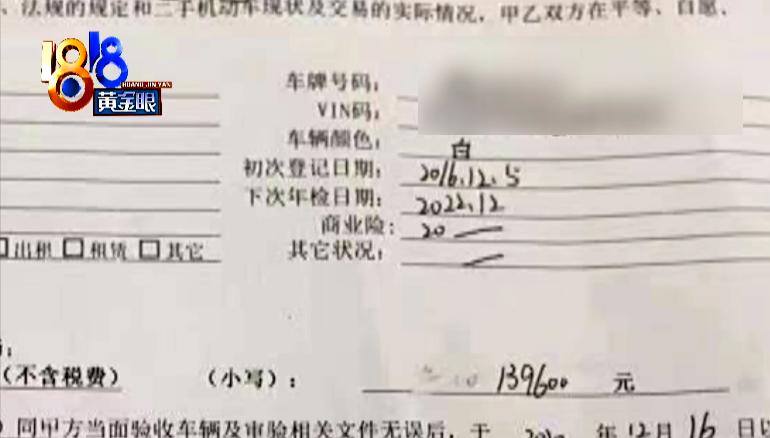 、法规的规定和二手机动车现状及交易的实际情况，甲乙双方在平等、自愿、
1818
HUANG JIN YAN
黄金眼
车牌号码：
VIN码：
车辆颜色： 白
初次登记日期： 2016.12.5
下次年检日期： 2022.12
商业险： 20 —
□出租 □租赁 □其它 其它状况： —
（不含税费） （小写）： 139600 元
同甲方当面验收车辆及审验相关文件无误后，于 年12月16日以